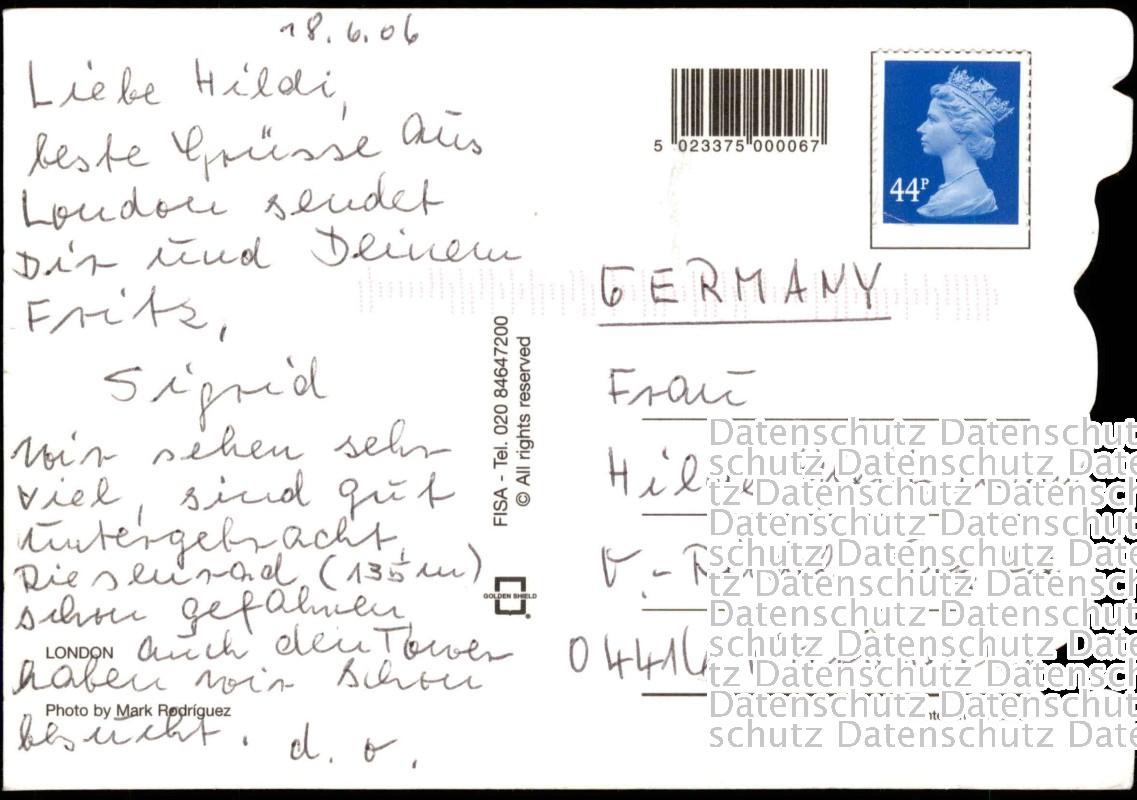 18.6.06
Liebe Hildi,
beste Grüsse aus
London sendet
Dir und Deinem
Fritz,
Sigrid
Wir sehen sehr
viel, sind gut
untergebracht,
Riesenrad (135 m)
schon gefahren,
auch den Tower
haben wir schon
besucht. d. o.
LONDON
Photo by Mark Rodríguez
FISA - Tel. 020 84647200
© All rights reserved
GOLDEN SHIELD
5 023375 000067
44P
GERMANY
Frau
Datenschutz Datenschut
schutz Datenschutz Date
tz Datenschutz Datensc
Datenschutz Datenschut
schutz Datenschutz Date
tz Datenschutz Datensc
Datenschutz Datenschut
schutz Datenschutz Date
tz Datenschutz Datensc
Datenschutz Datenschut
schutz Datenschutz Date